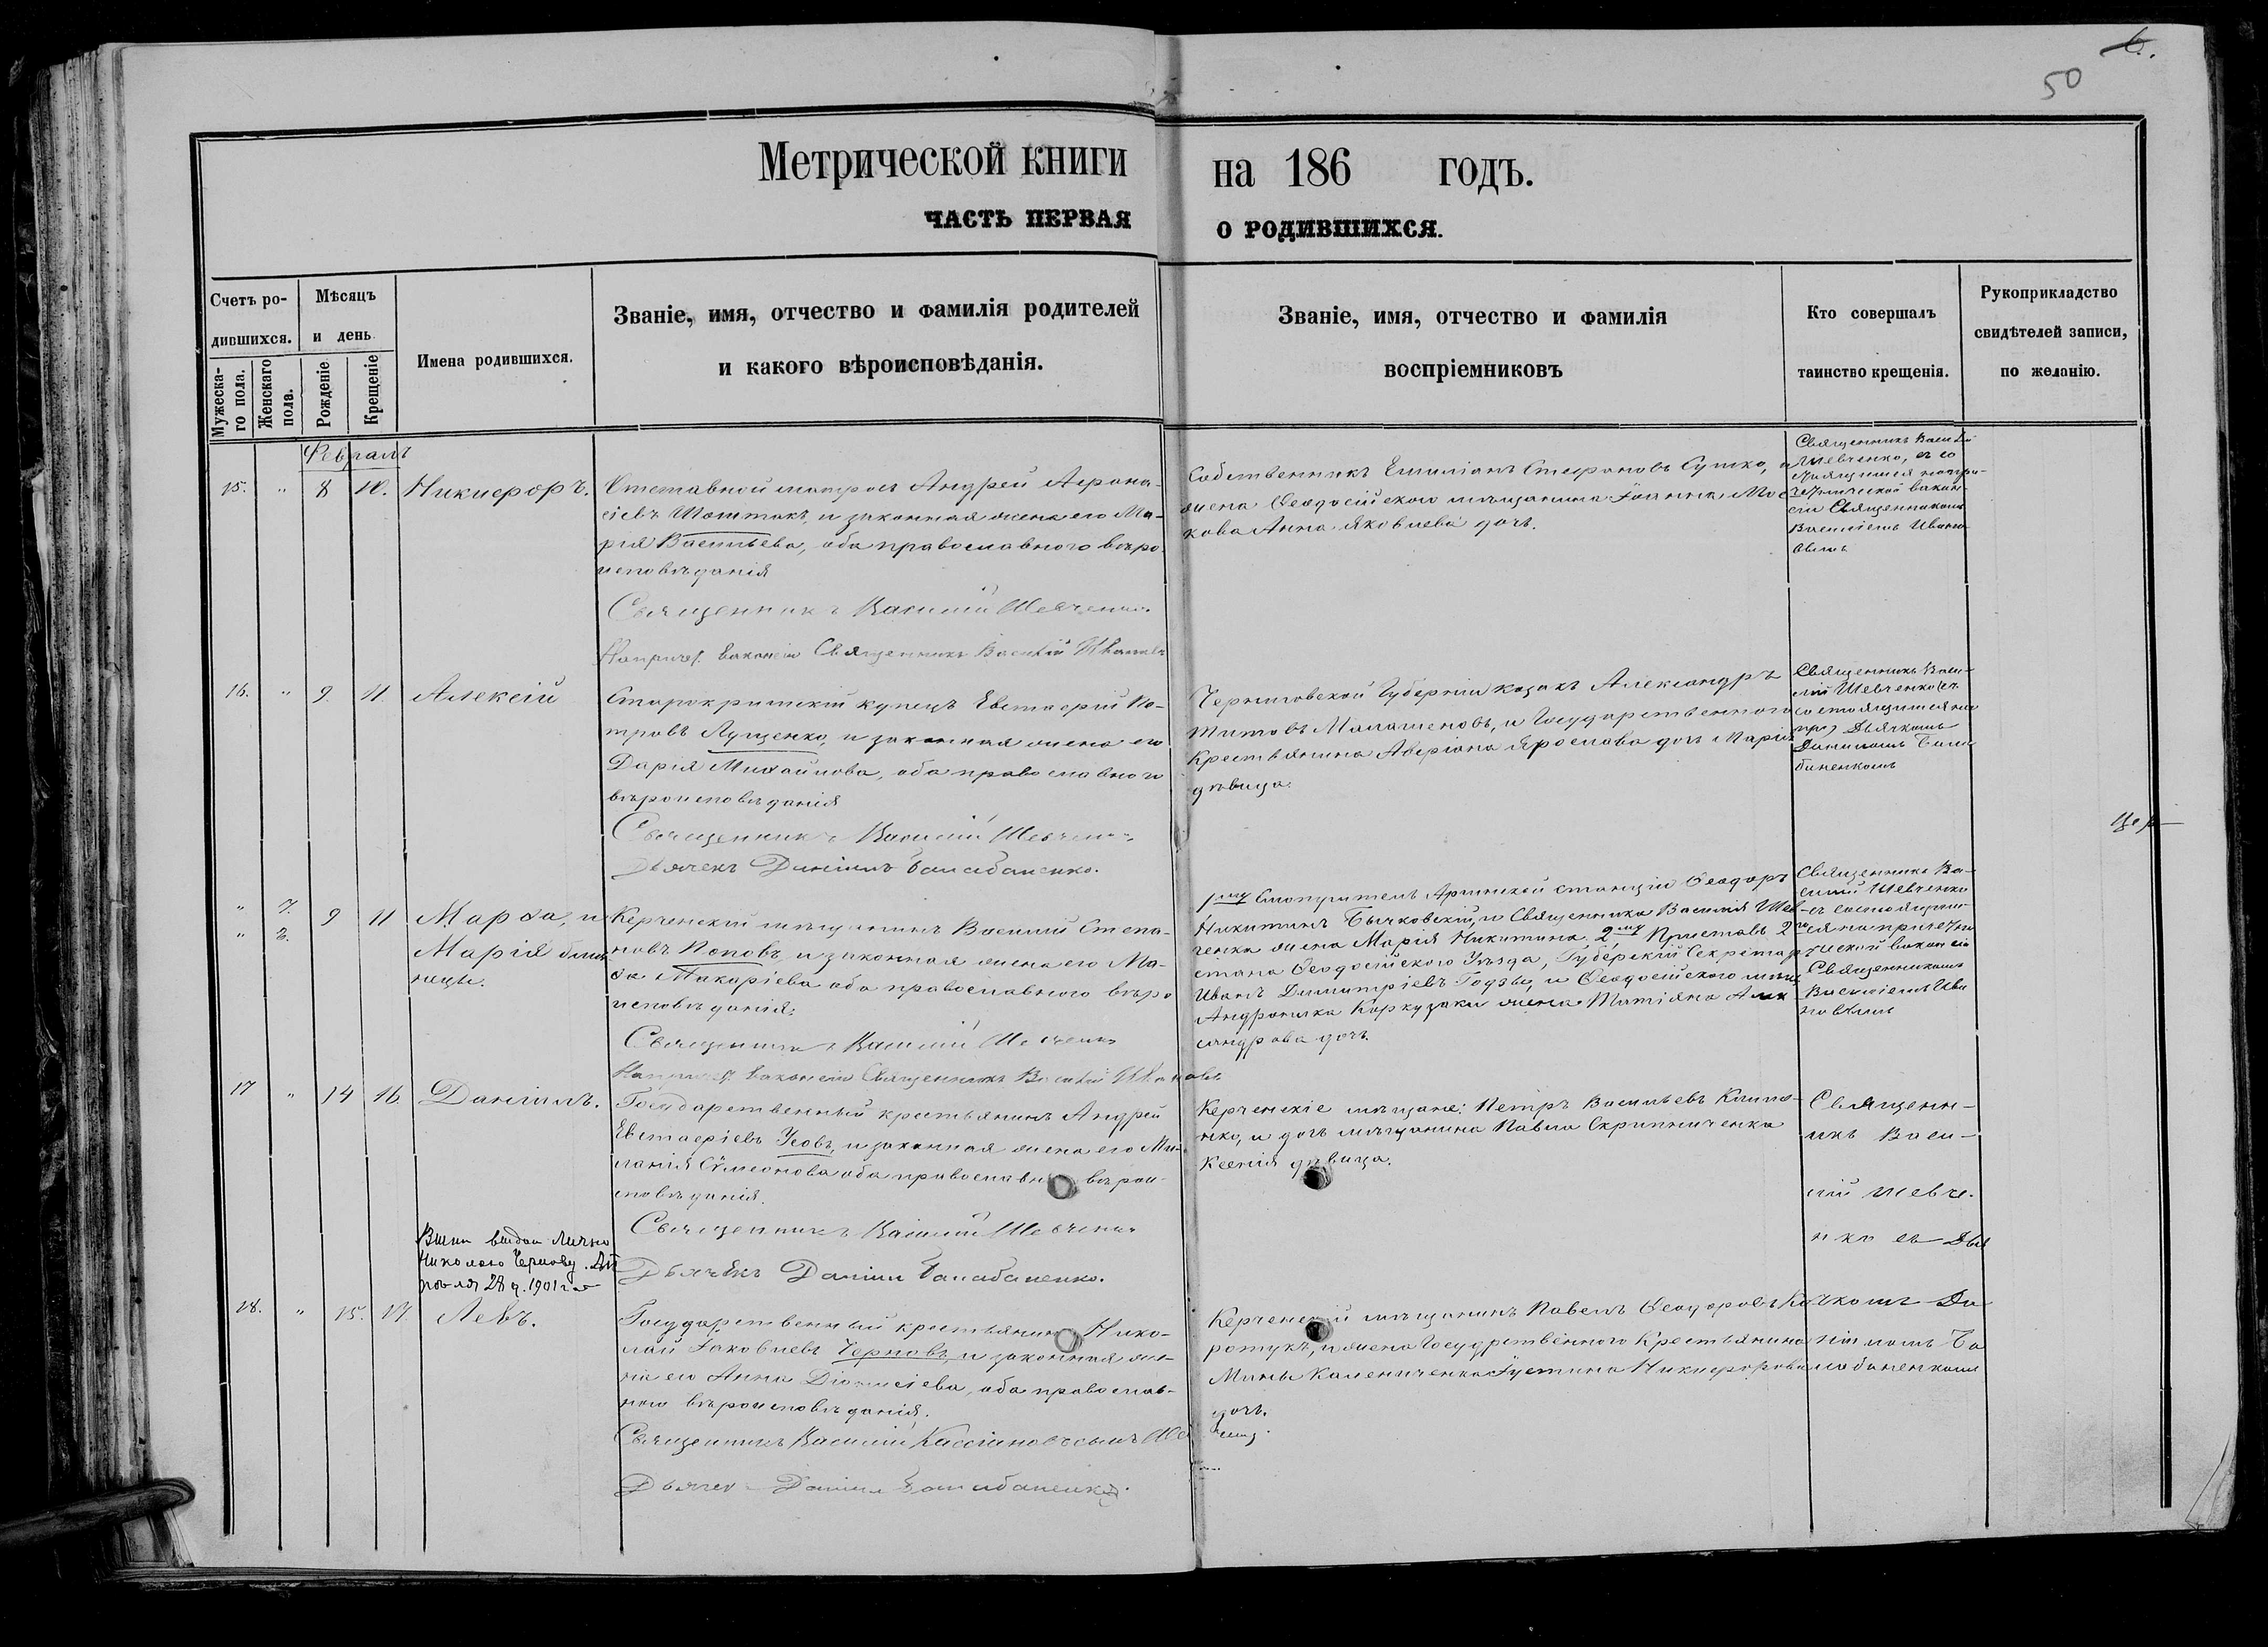 6.
50
Метрической книги на 186 годъ.
ЧАСТЬ ПЕРВАЯ О РОДИВШИХСЯ.
Счетъ ро-
дившихся.
Мужеска-
го пола.
Женскаго
пола.
Мѣсяцъ
и день
Рожденіе
Крещеніе
Имена родившихся.
Званіе, имя, отчество и фамилія родителей
и какого вѣроисповѣданія.
Званіе, имя, отчество и фамилія
воспріемниковъ
Кто совершалъ
таинство крещенія.
Рукоприкладство
свидѣтелей записи,
по желанію.
Февраль
15. " 8 10. Никифоръ.
Отставной матросъ Андрей Афана-
сіевъ Шоштакъ, и законная жена его Ма-
рія Васильева, оба православного вѣро-
исповѣданія
Священникъ Василій Шевченко
вакансіи Священникъ Василій Ивановъ
Собственникъ Емиліанъ Стефановъ Сушко, и
жена Феодосійского мѣщанина Іоанна Мос-
кова Анна Яковлева дочь.
Священникъ Василій
Шевченко, съ со-
стоящимся на при-
четнической вакан-
сіи Священникомъ
Василіемъ Ивано-
вымъ
16. " 9. 11. Алексій
Старокрымскій купецъ Евстафій Пе-
тровъ Лущенко, и законная жена его
Дарія Михайлова, оба православного
вѣроисповѣданія
Священникъ Василій Шевченко
Дьячекъ Даніилъ Балабаненко.
Черниговской Губерніи козакъ Александръ
Титовъ Малашеновъ, и Государственного
Крестьянина Аверіана Ярослова дочь Марія
дѣвица.
Священникъ Васи-
лій Шевченко съ
Дьячкомъ
Даніиломъ Бала-
баненкомъ
" 7. 9 11 Марфа, и
" 8. Марія близ-
нецы.
Керченскій мѣщанинъ Василій Степа-
новъ Поповъ, и законная жена его Ма-
Макаріева оба православного вѣро-
исповѣданія:
Священникъ Василій Шевченко
вакансіи Священникъ Василій Ивановъ
1му Смотритель станціи Феодоръ
Никитинъ Бычковскій, и Священника Василія Шев-
ченко жена Марія Никитина. 2му Приставъ 2го
стана Феодосійского Уѣзда, Губерскій Секретарь
Иванъ Димитріевъ и Феодосійского мѣщ.
Андроника жена Татіана Алек-
сандрова дочь.
Священникъ Ва-
силій Шевченко
съ состоящим-
ся на причетни-
ческой вакансіи
Священникомъ
Василіемъ Ива-
новымъ
17 " 14 16. Даніилъ.
Государственный крестьянинъ Андрей
Евстафіевъ Усовъ, и законная жена его Ме-
ланія Сѵмеонова оба православн вѣрои-
сповѣданія.
Священникъ Василій Шевченко
Дьячекъ Даніилъ Балабаненко.
Керченскіе мѣщане: Петръ Васильевъ Климе-
нко, и дочь мѣщанина Павла Скрипниченка
Ксенія дѣвица.
Священн-
икъ Васи-
лій Шевче-
нко съ Дья
чкомъ Да-
ніиломъ Ба
лабаненкомъ
выдан лично
Николаю Чернову. Ап
реля 28 д. 1901 г.
18. " 15. 17. Левъ.
Государственный крестьянинъ Нико-
лай Іаковлевъ Черновъ, и законная же-
на его Анна Діонисіева, оба православ-
ного вѣроисповѣданія.
Священникъ Василій Кассіановъ сынъ
Дьячекъ Даніилъ Балабаненко.
Керченскій мѣщанинъ Павелъ Феодоровъ Ко-
ротукъ, и жена Государственного Крестьянина
Мины Калениченка Іустина Никифорова
дочь.